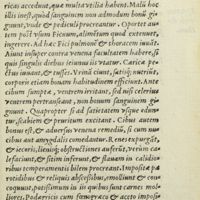 ricas accedunt, quæ multa vtilia habent. Mali hoc
illis inest, quòd sanguinem non admodum bonũ gi-
gnunt, vnde & pediculi procreantur. Oportet au-
tem post vsum Ficuum, alimētum quod extenuet,
ingerere. Ad hæc Fici pulmoni & thoraci conueniunt.
Aiunt insuper contra venena facultatem habere, si
quis singulis diebus ieiunus iis vtatur. Caricæ pe-
ctus iuuant, & tusses. Vrinā ciunt, satis nutriũt,
corporis etiam bonam habitudinem efficiunt. Ante
cibum sumptæ, ventrem irritant, sed nisi celerius
ventrem pertranseant, non bonum sanguinem gi-
gnunt. Quapropter si ad satietatem vsque edun-
tur, scabiem & pruritum excitant. Cibus autem
bonus est, & aduersus venena remediũ, si cum nu-
cibus aut amygdalis comedantur. Renes expurgāt,
& iecoris, lienisq; obstructiones auferũt. Verùm eis
læsis, sitim inferunt, & flauam in calidio-
ribus temperamentis bilem procreant. Imposita pa-
rotidibus & reliquis abscessibus, emolliunt & con-
coquunt, potissimum in iis quibus sunt carnes mol-
liores. Podagricis cum fœnogræco & aceto imposi-